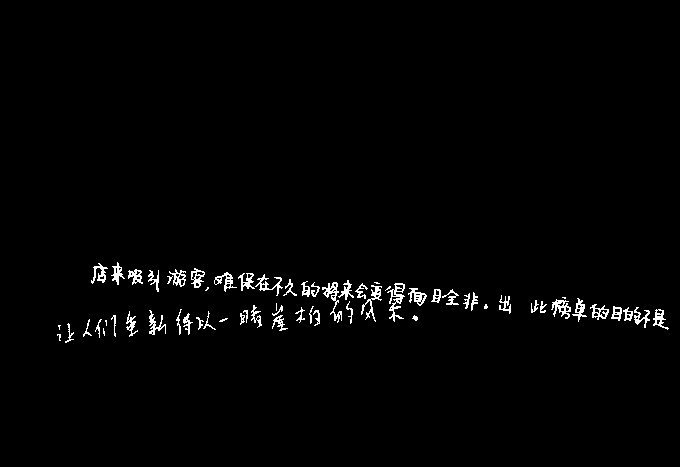 店来吸引游客,难保在不久的将来会变得面目全非。出 此榜单的目的不是
让人们重新得以一睹崖柏的风采。